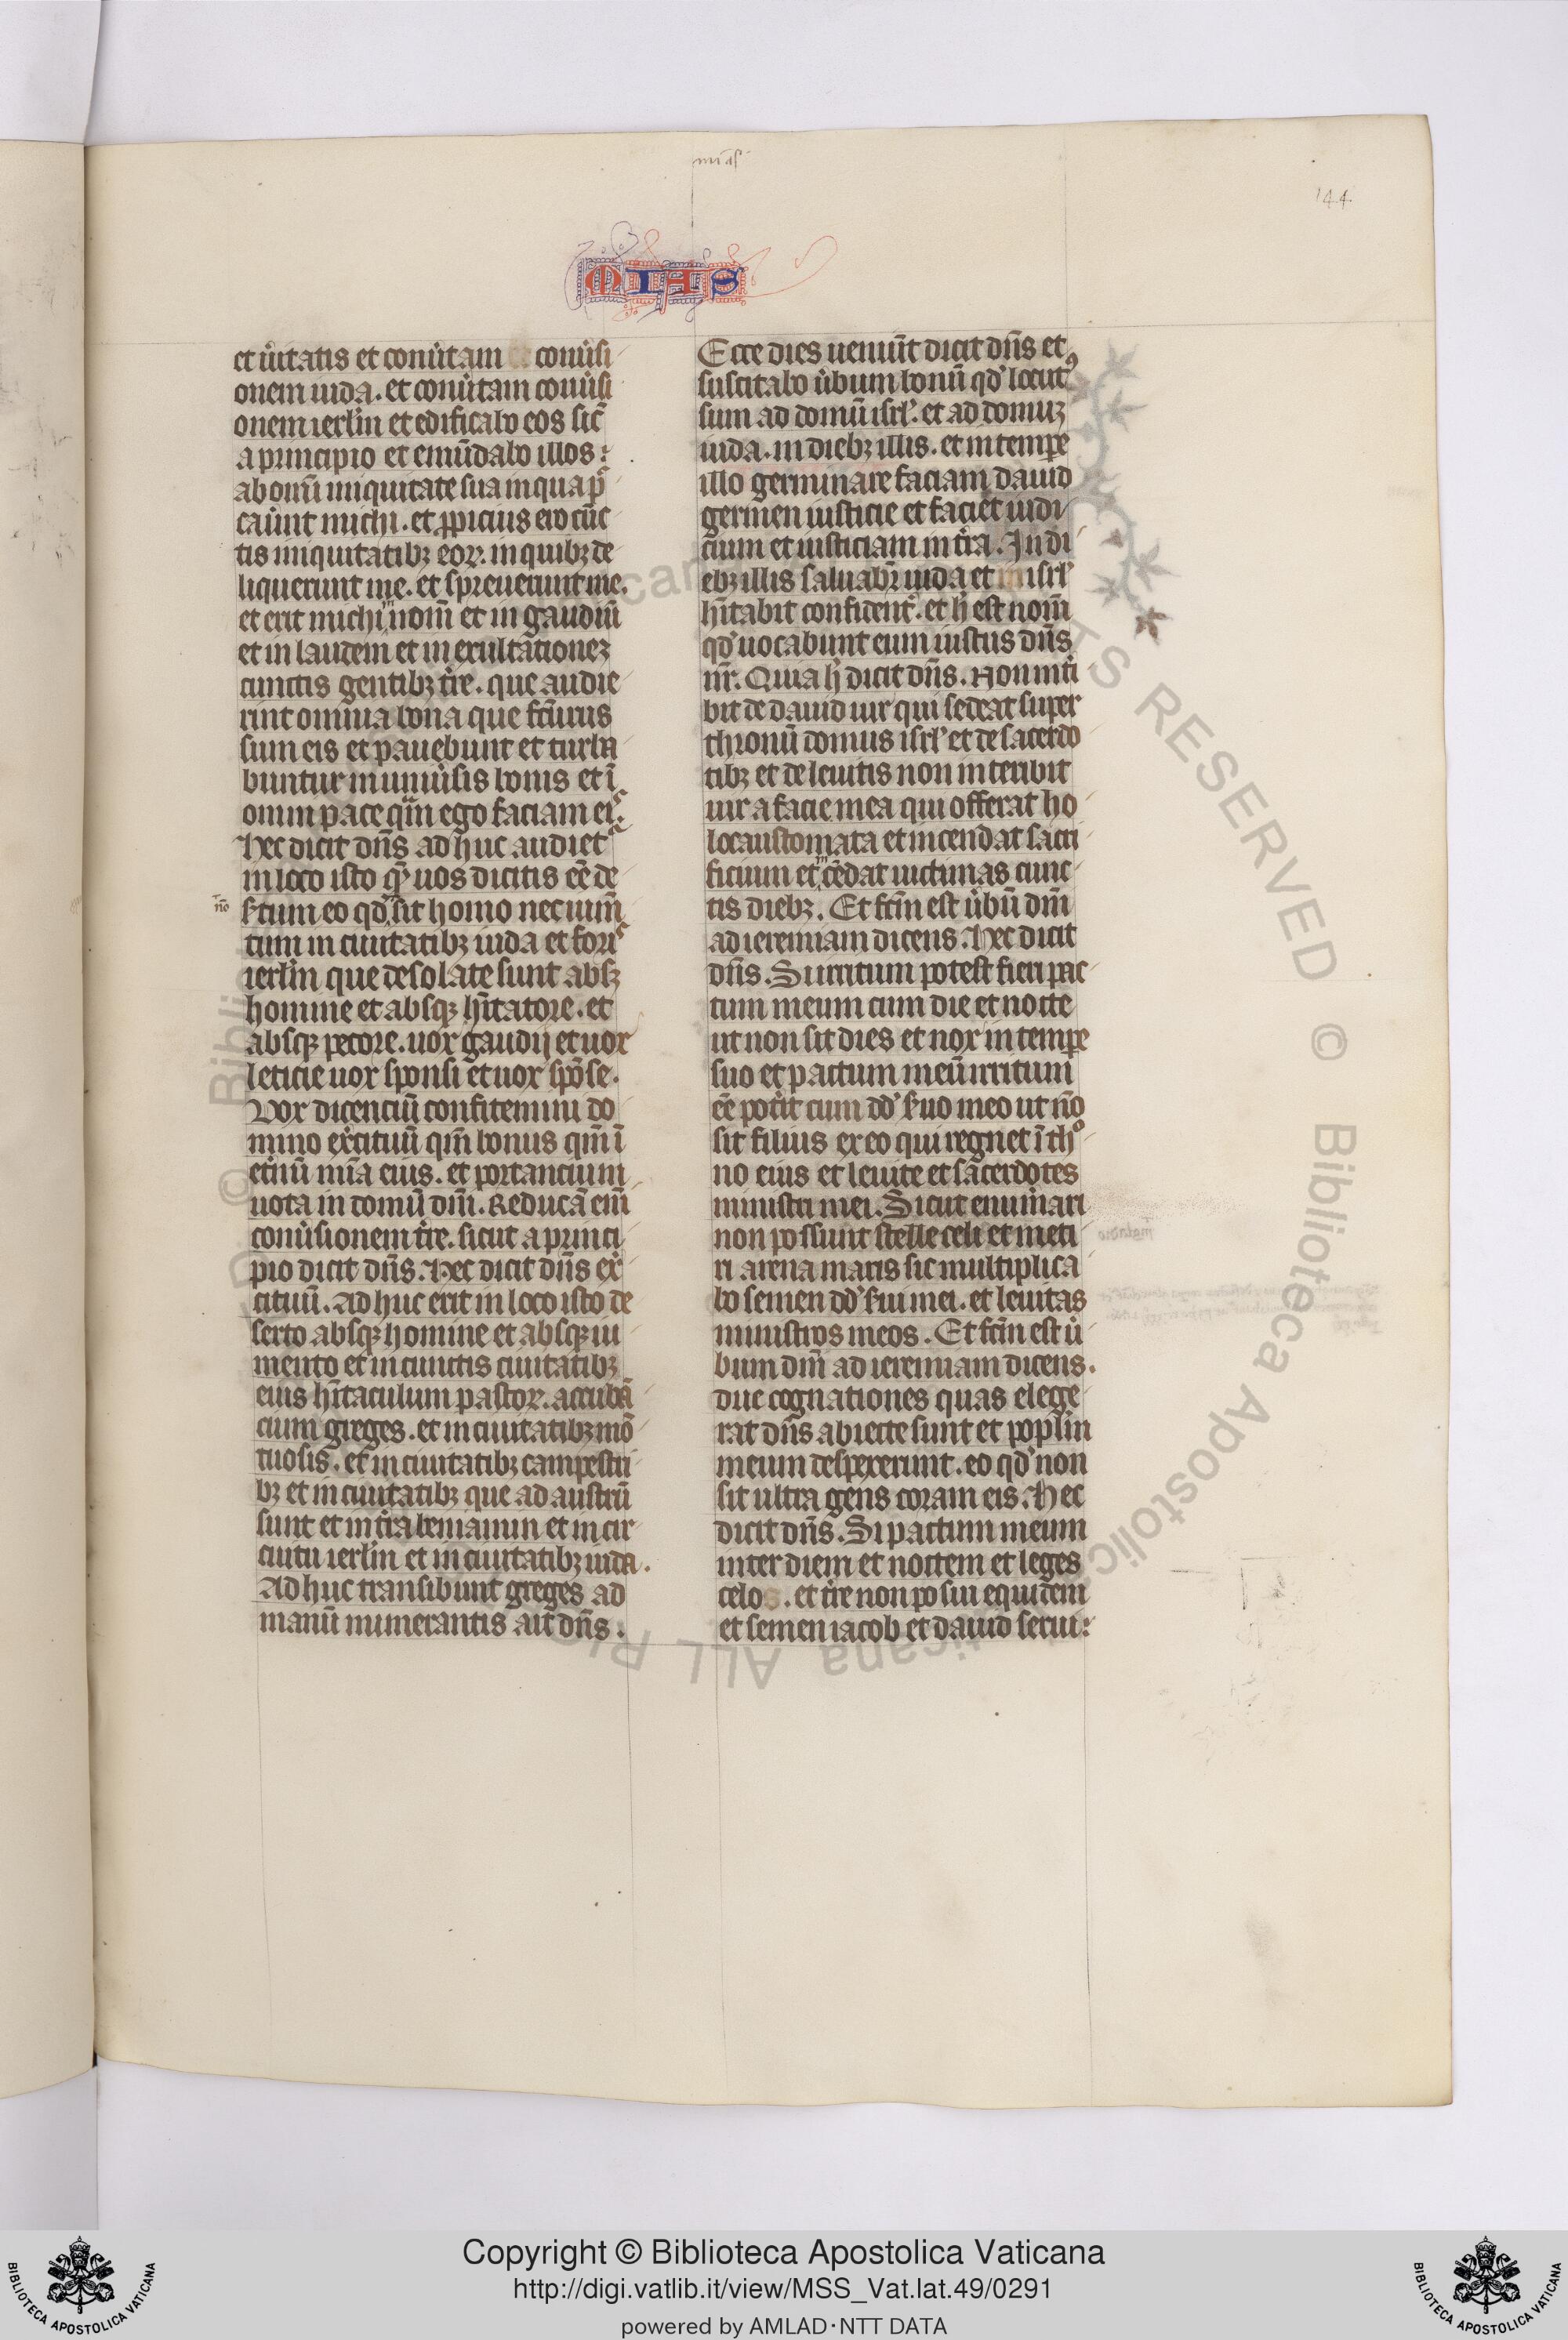 mias
144
MIAS
et u͛itatis et conu͛tam conu͛si
onem iuda. et conu͛tam conu͛si
onem ierl̅m et edificabo eos sic̅
a principio et emu̅dabo illos:
ab omni̅ iniquitate sua in qua p̅
cau͛nt michi. et ꝓpicius ero cu̅c
tis iniquitatibꝫ eoꝝ. in quibꝫ de
liquerunt me. et spreuerunt me.
et erit michi nom̅ et in gaudiu̅
et in laudem et in exultationeꝫ
cunctis gentibꝫ t͛re. que audie
rint omnia bona que fc̅urus
sum eis et pauebunt et turba
buntur in uniu͛sis bonis et i̅
omni pace qua̅ ego faciam eis.
Hec dicit dn̅s ad huc audiet᷑
in loco isto que̅ uos dicitis ee̅ de
s͛tum eo qd̕ sit homo nec ium̅
tum in ciuitatibꝫ iuda et foris
ierl̅m que desolate sunt absꝫ
homine et absqꝫ hi̅tatore. et
absqꝫ pecore. uox gaudij et uox
leticie uox sponsi et uox spo̅se.
Vox dicenciu̅ confitemini do
mino ex͛cituu̅ qm̅ bonus qm̅ i̅
et͛nu̅ mi̅a eius. et portancium
uota in domu̅ dm̅i. Reduca̅ eni̅
conu͛sionem t͛re. sicut a princi
pio dicit dn̅s. Hec dicit dn̅s ex͛
cituu̅. Ad huc erit in loco isto de
serto absqꝫ homine et absqꝫ iu
mento et in cunctis ciuitatibꝫ
eius hi̅taculum pastoꝝ. accuba̅
cium greges. et in ciuitatibꝫ mo̅
tuosis. et in ciuitatibꝫ campestri
bꝫ et in ciuitatibꝫ que ad austru̅
sunt et in t͛ra beniamin et in cir
cuitu ierl̅m et in ciuitatibꝫ iuda.
Ad huc transibunt greges ad
manu̅ numerantis ait dn̅s.
no̅
Ecce dies ueniu̅t dicit dn̅s et
suscitabo u͛bum bonu̅ qd̕ locutꝰ
sum ad domu̅ isrl̕. et ad domuꝫ
iuda. in diebꝫ illis. et in temꝑe
illo germinare faciam dauid
germen iusticie et faciet iudi
cium et iusticiam in t͛ra. In di
ebꝫ illis saluabr̅ iuda et isrl̕
hi̅tabit confident͛. et h̕ est nom̅
qd̕ uocabunt eum iustus dn̅s
nr̅. Quia h̕ dicit dn̅s. Non int͛i
bit de dauid uir qui sedeat super
thronu̅ domus isrl̕ et de sacerdo
tibꝫ et de leuitis non interibit
uir a facie mea qui offerat ho
locaustomata et incendat sacri
ficium et ce̅dat uictimas cunc
tis diebꝫ. Et fc̅m est u͛bu̅ dm̅i
ad ieremiam dicens. Hec dicit
dn̅s. Si irritum potest fieri pac
tum meum cum die et nocte
ut non sit dies et nox in temꝑe
suo et pactum meu̅ irritum
ee̅ pot͛it cum dd̕ s͛uo meo ut no̅
sit filius ex eo qui regnet i̅ thͦ
no eius et leuite et sacerdotes
ministri mei. Sicut enum͛ari
non possunt stelle celi et meti
ri arena maris sic multiplica
bo semen dd̕ s͛ui mei. et leuitas
ministros meos. Et fc̅m est u͛
bum dm̅i ad ieremiam dicens.
due cognationes quas elege
rat dn̅s abiecte sunt et popl̅m
meum despexerunt. eo qd̕ non
sit ultra gens coram eis. Hec
dicit dn̅s. Si pactum meum
inter diem et noctem et leges
celo. et t͛re non posui equidem
et semen iacob et dauid serui:
Copyright © Biblioteca Apostolica Vaticana
http://digi.vatlib.it/view/MSS_Vat.lat.49/0291
powered by AMLAD·NTT DATA
BIBLIOTECA APOSTOLICA VATICANA
BIBLIOTECA APOSTOLICA VATICANA